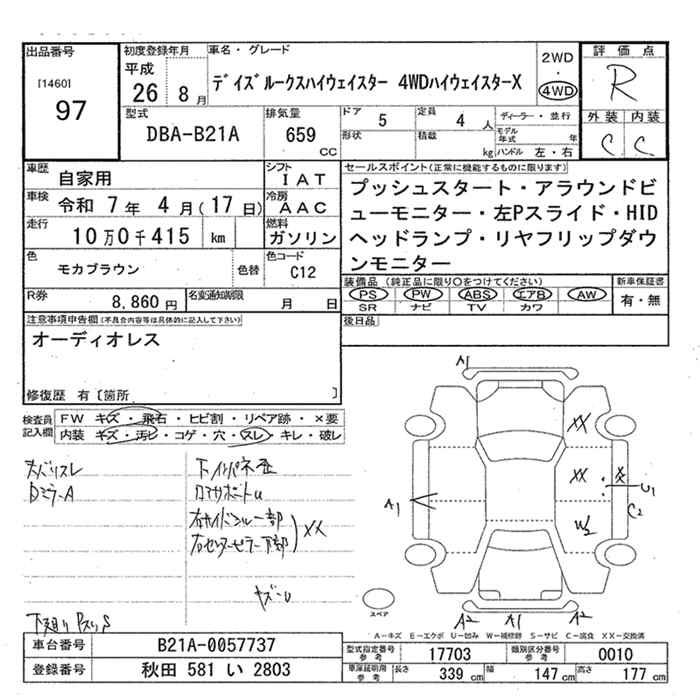 出品番号
[1460]
97
初度登録年月
平成
26 8 月
車名・グレード
デイズルークスハイウェイスター 4WDハイウェイスターX
2WD
4WD
評価点
R
外装 内装
C C
型式
DBA-B21A
排気量
659
CC
ドア
5
形状
定員
4 人
積載
kg
ディーラー・並行
モデル年式 年
ハンドル 左・右
車歴
自家用
車検
令和 7 年 4 月 ( 17 日)
走行
10 万 0 千 415 km
色
モカブラウン
色替
シフト
IAT
冷房
AAC
燃料
ガソリン
色コード
C12
セールスポイント(正常に機能するものに限ります)
プッシュスタート・アラウンドビ
ューモニター・左Pスライド・HID
ヘッドランプ・リヤフリップダウ
ンモニター
R券
8,860 円
名変通知期限
月 日
装備品 (純正品に限り○をつけてください)
PS PW ABS エアB AW
SR ナビ TV カワ
新車保証書
有・無
後日品
注意事項申告欄(不具合内容等は具体的に記入して下さい)
オーディオレス
修復歴 有 [箇所 ]
検査員記入欄
FW キズ・飛石・ヒビ割・リペア跡・×要
内装 キズ・汚レ・コゲ・穴・スレ・キレ・破レ
DミラーA
A1
XX
XX
XX
A1
U1
C2
W2
A2 A1 A2
XX
スペア
A－キズ E－エクボ U－凹み W－補修跡 S－サビ C－腐食 XX－交換済
車台番号
B21A-0057737
登録番号
秋田 581 い 2803
型式指定番号 参考
17703
類別区分番号 参考
0010
車庫証明用 参考
長さ 339 cm 幅 147 cm 高さ 177 cm